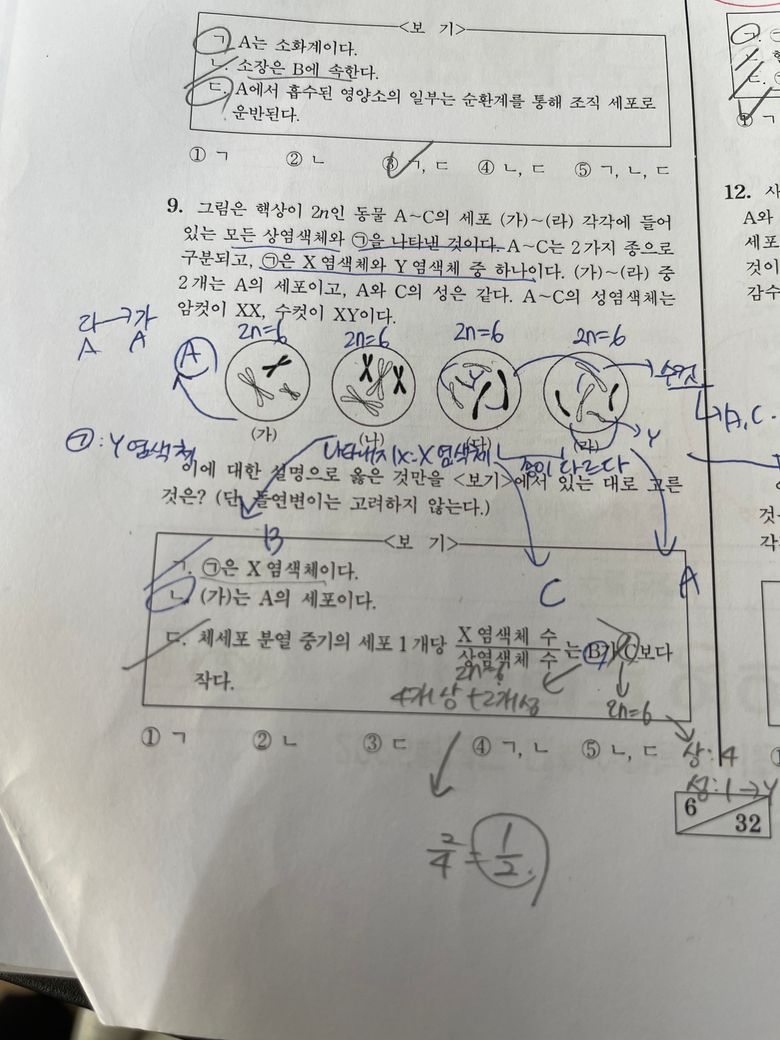 <보 기>
ㄱ. A는 소화계이다.
ㄴ. 소장은 B에 속한다.
ㄷ. A에서 흡수된 영양소의 일부는 순환계를 통해 조직 세포로
운반된다.
① ㄱ ② ㄴ ③ ㄱ, ㄷ ④ ㄴ, ㄷ ⑤ ㄱ, ㄴ, ㄷ
9. 그림은 핵상이 2n인 동물 A~C의 세포 (가)~(라) 각각에 들어
있는 모든 상염색체와 ㉠을 나타낸 것이다. A~C는 2가지 종으로
구분되고, ㉠은 X 염색체와 Y 염색체 중 하나이다. (가)~(라) 중
2개는 A의 세포이고, A와 C의 성은 같다. A~C의 성염색체는
암컷이 XX, 수컷이 XY이다.
라→가
A A
A
2n=6 2n=6 2n=6 2n=6
수컷
A, C
(가) (나) (다) (라)
Y
㉠: Y 염색체
나타내지 X: X 염색체
종이 다르다
이에 대한 설명으로 옳은 것만을 <보기>에서 있는 대로 고른
것은? (단, 돌연변이는 고려하지 않는다.)
B
C
A
<보 기>
ㄱ. ㉠은 X 염색체이다.
ㄴ. (가)는 A의 세포이다.
ㄷ. 체세포 분열 중기의 세포 1개당 X 염색체 수 / 상염색체 수 는 B가 C보다
작다.
2n=6
4개 상 + 2개 성
2n=6
① ㄱ ② ㄴ ③ ㄷ ④ ㄱ, ㄴ ⑤ ㄴ, ㄷ
상: 4
성: 1 → Y
2/4 = 1/2.
6
32
12. 사
A와
세포
것이
감수
것은
각각